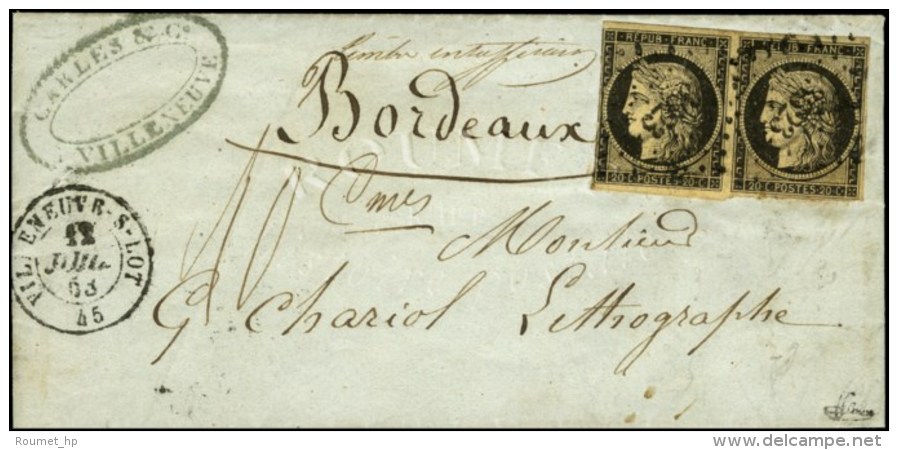 CARLES & Cie
VILLENEUVE
Timbre insuffisant
Bordeaux
REPUB. FRANC.
20 C. POSTES 20 C.
REPUB. FRANC.
20 C. POSTES 20 C.
VILLENEUVE-S-LOT
12
JUIL.
53
45
Monsieur
G. Chariol Lithographe
Roumet_hp
www.delcampe.net